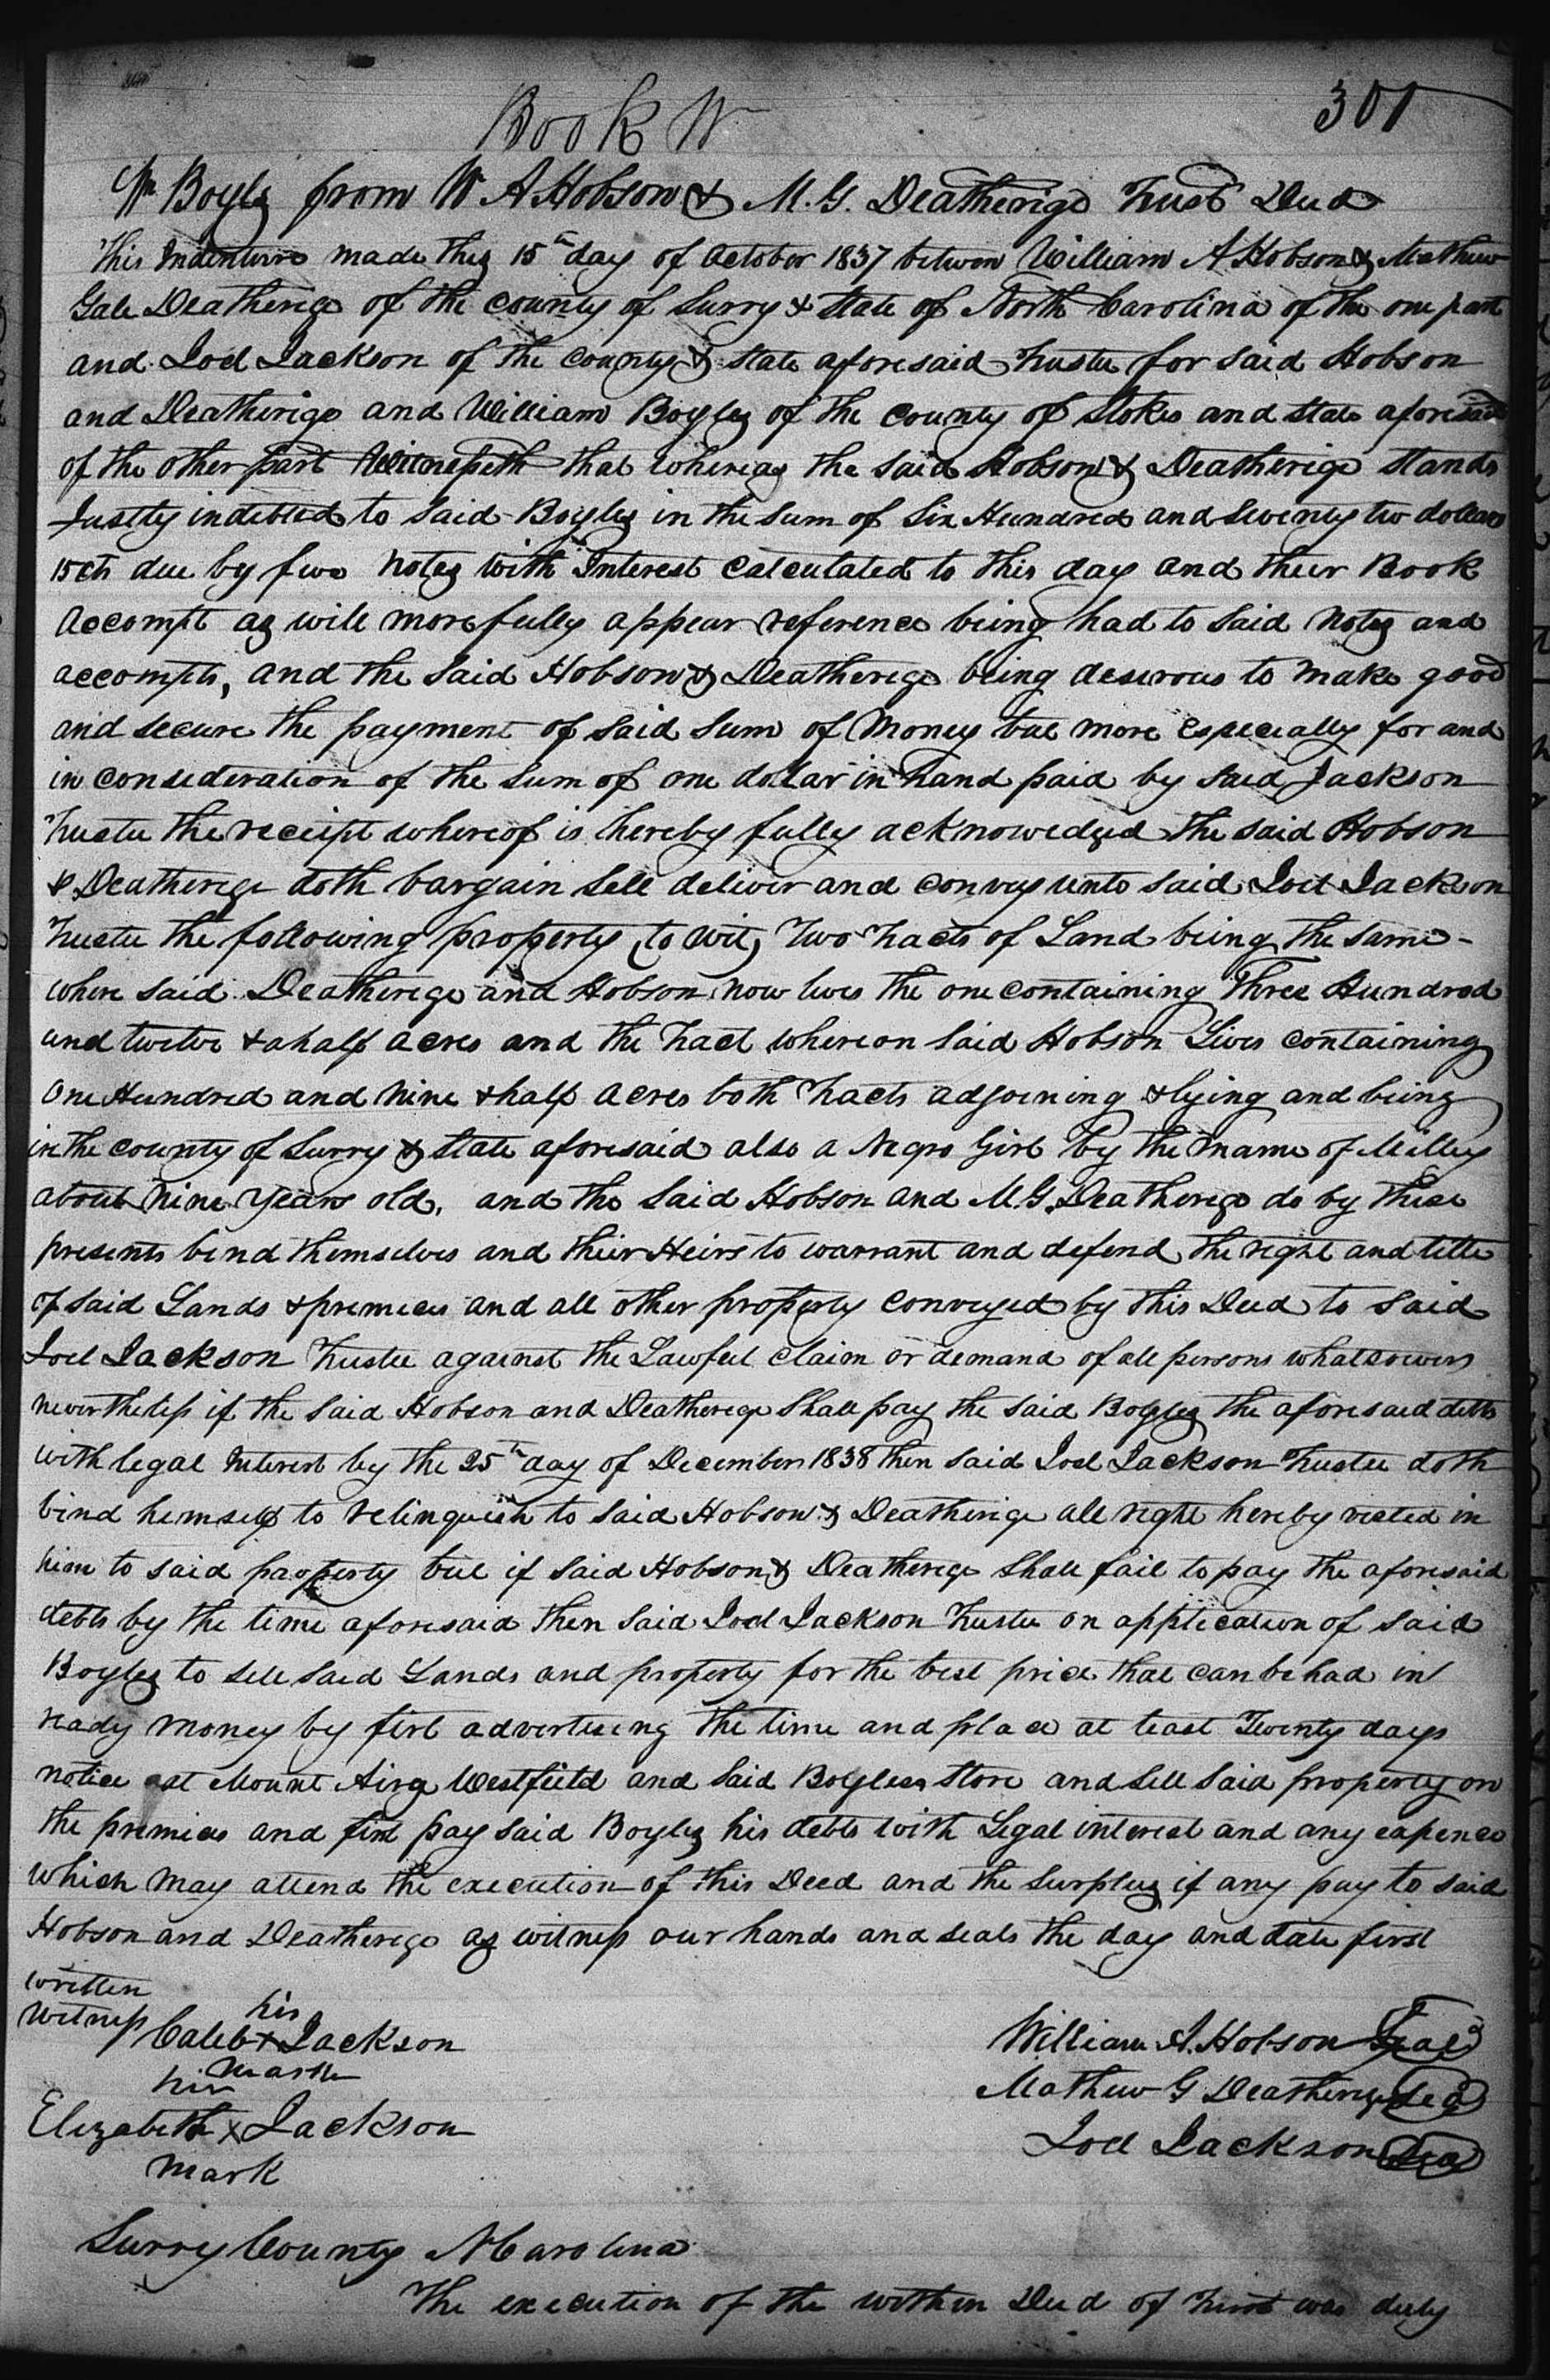 Book W
301
Wm Boyles from W A Hobson & M. G. Deatherige Trust Deed
This Indenture made this 15th day of October 1837 between William A Hobson & Mathew
Gale Deatherige of the county of Surry & state of North Carolina of the one part
and Joel Jackson of the county & state aforesaid Trustee for said Hobson
and Deatherige and William Boyles of the county of Stokes and state aforesaid
of the other part Witnesseth that whereas the said Hobson & Deatherige stands
Justly indebted to said Boyles in the sum of Six Hundred and Seventy two dollars
15cts due by two notes with Interest Calculated to this day and their Book
Accompt as will more fully appear reference being had to said notes and
accompts, and the said Hobson & Deatherige being desirous to make good
and secure the payment of said Sum of Money but more especially for and
in consideration of the sum of one dollar in hand paid by said Jackson
Trustee the receipt whereof is hereby fully acknowedged the said Hobson
& Deatherige doth bargain sell deliver and convey unto said Joel Jackson
Trustee the following property, to wit, Two Tracts of Land being the same -
where said Deatherige and Hobson now lives the one containing Three Hundred
and twelve & a half acres and the Tract whereon said Hobson Lives containing
One Hundred and nine & half acres both Tracts adjoining & lying and being
in the county of Surry & state aforesaid also a Negro Girl by the name of Milley
about nine years old, and the said Hobson and M. G. Deatherige do by these
presents bend themselves and their Heirs to warrant and defend the right and title
of said Lands & premices and all other property conveyed by this Deed to said
Joel Jackson Trustee against the Lawful claim or demand of all persons whatsoever
nevertheless if the said Hobson and Deatherige shall pay the said Boyles the aforesaid debts
with legal Interest by the 25th day of December 1838 then said Joel Jackson Trustee doth
bind hemself to relinquish to said Hobson & Deatherige all right hereby vested in
him to said property but if said Hobson & Deatherige shall fail to pay the aforesaid
debts by the time aforesaid then said Joel Jackson Trustee on application of said
Boyles to sell said Lands and property for the best price that can be had in
ready money by first advertising the time and place at least Twenty days
notice at Mount Airy Westfield and said Boyles Store and sell said property on
the premices and first pay said Boyles his debts with Legal interest and any expence
which may attend the execution of this Deed and the surplus if any pay to said
Hobson and Deatherige as witness our hands and seals the day and date first
written
Witness his
Caleb x Jackson
mark
William A. Hobson Seal
his
Mathew G Deatherige Seal
Elizabeth x Jackson
mark
Joel Jackson Seal
Surry County N Carolina
The execution of the within Deed of Trust was duly